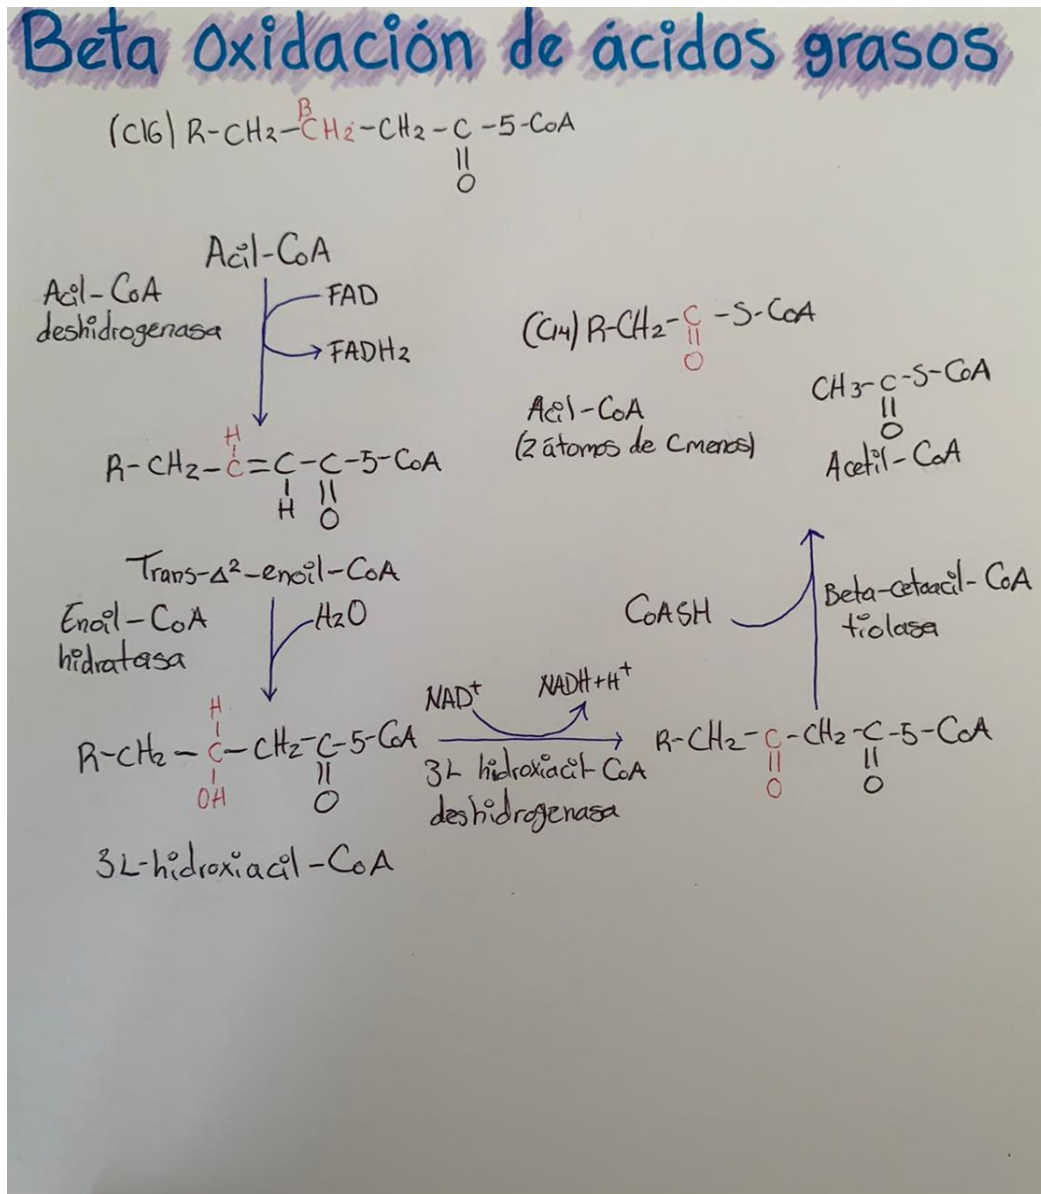 Beta Oxidación de ácidos grasos
β
(C16) R-CH2-CH2-CH2-C-5-CoA
||
O
Acil-CoA
Acil-CoA
deshidrogenasa
FAD
FADH2
H
R-CH2-C=C-C-5-CoA
H || O
Trans-Δ²-enoil-CoA
Enoil-CoA
hidratasa
H2O
H
R-CH2-C-CH2-C-5-CoA
OH || O
3L-hidroxiacil-CoA
NAD+ NADH+H+
3L hidroxiacil-CoA
deshidrogenasa
R-CH2-C-CH2-C-5-CoA
|| ||
O O
CoASH
Beta-cetoacil-CoA
tiolasa
(C14) R-CH2-C-S-CoA
||
O
Acil-CoA
(2 átomos de C menos)
CH3-C-S-CoA
||
O
Acetil-CoA